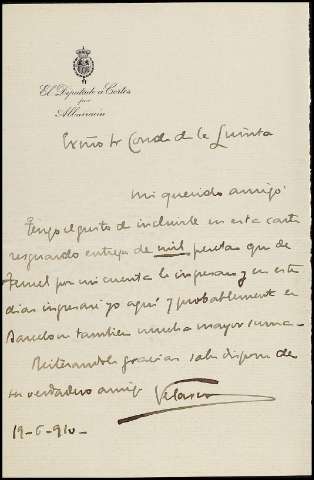 El Diputado a Cortes
por
Albarracín
Exmo Sr Conde de la Quinta
Mi querido amigo:
Tengo el gusto de incluirle en esta carta
resguardo entrega de mil pesetas que de
Teruel por mi cuenta le ingresaron y en estos
dias ingresaré yo aquí y probablemente en
Barcelona tambien mucha mayor suma.
Reiterandole gracias sabe dispone de
su verdadero amigo Velasco
19-6-910-